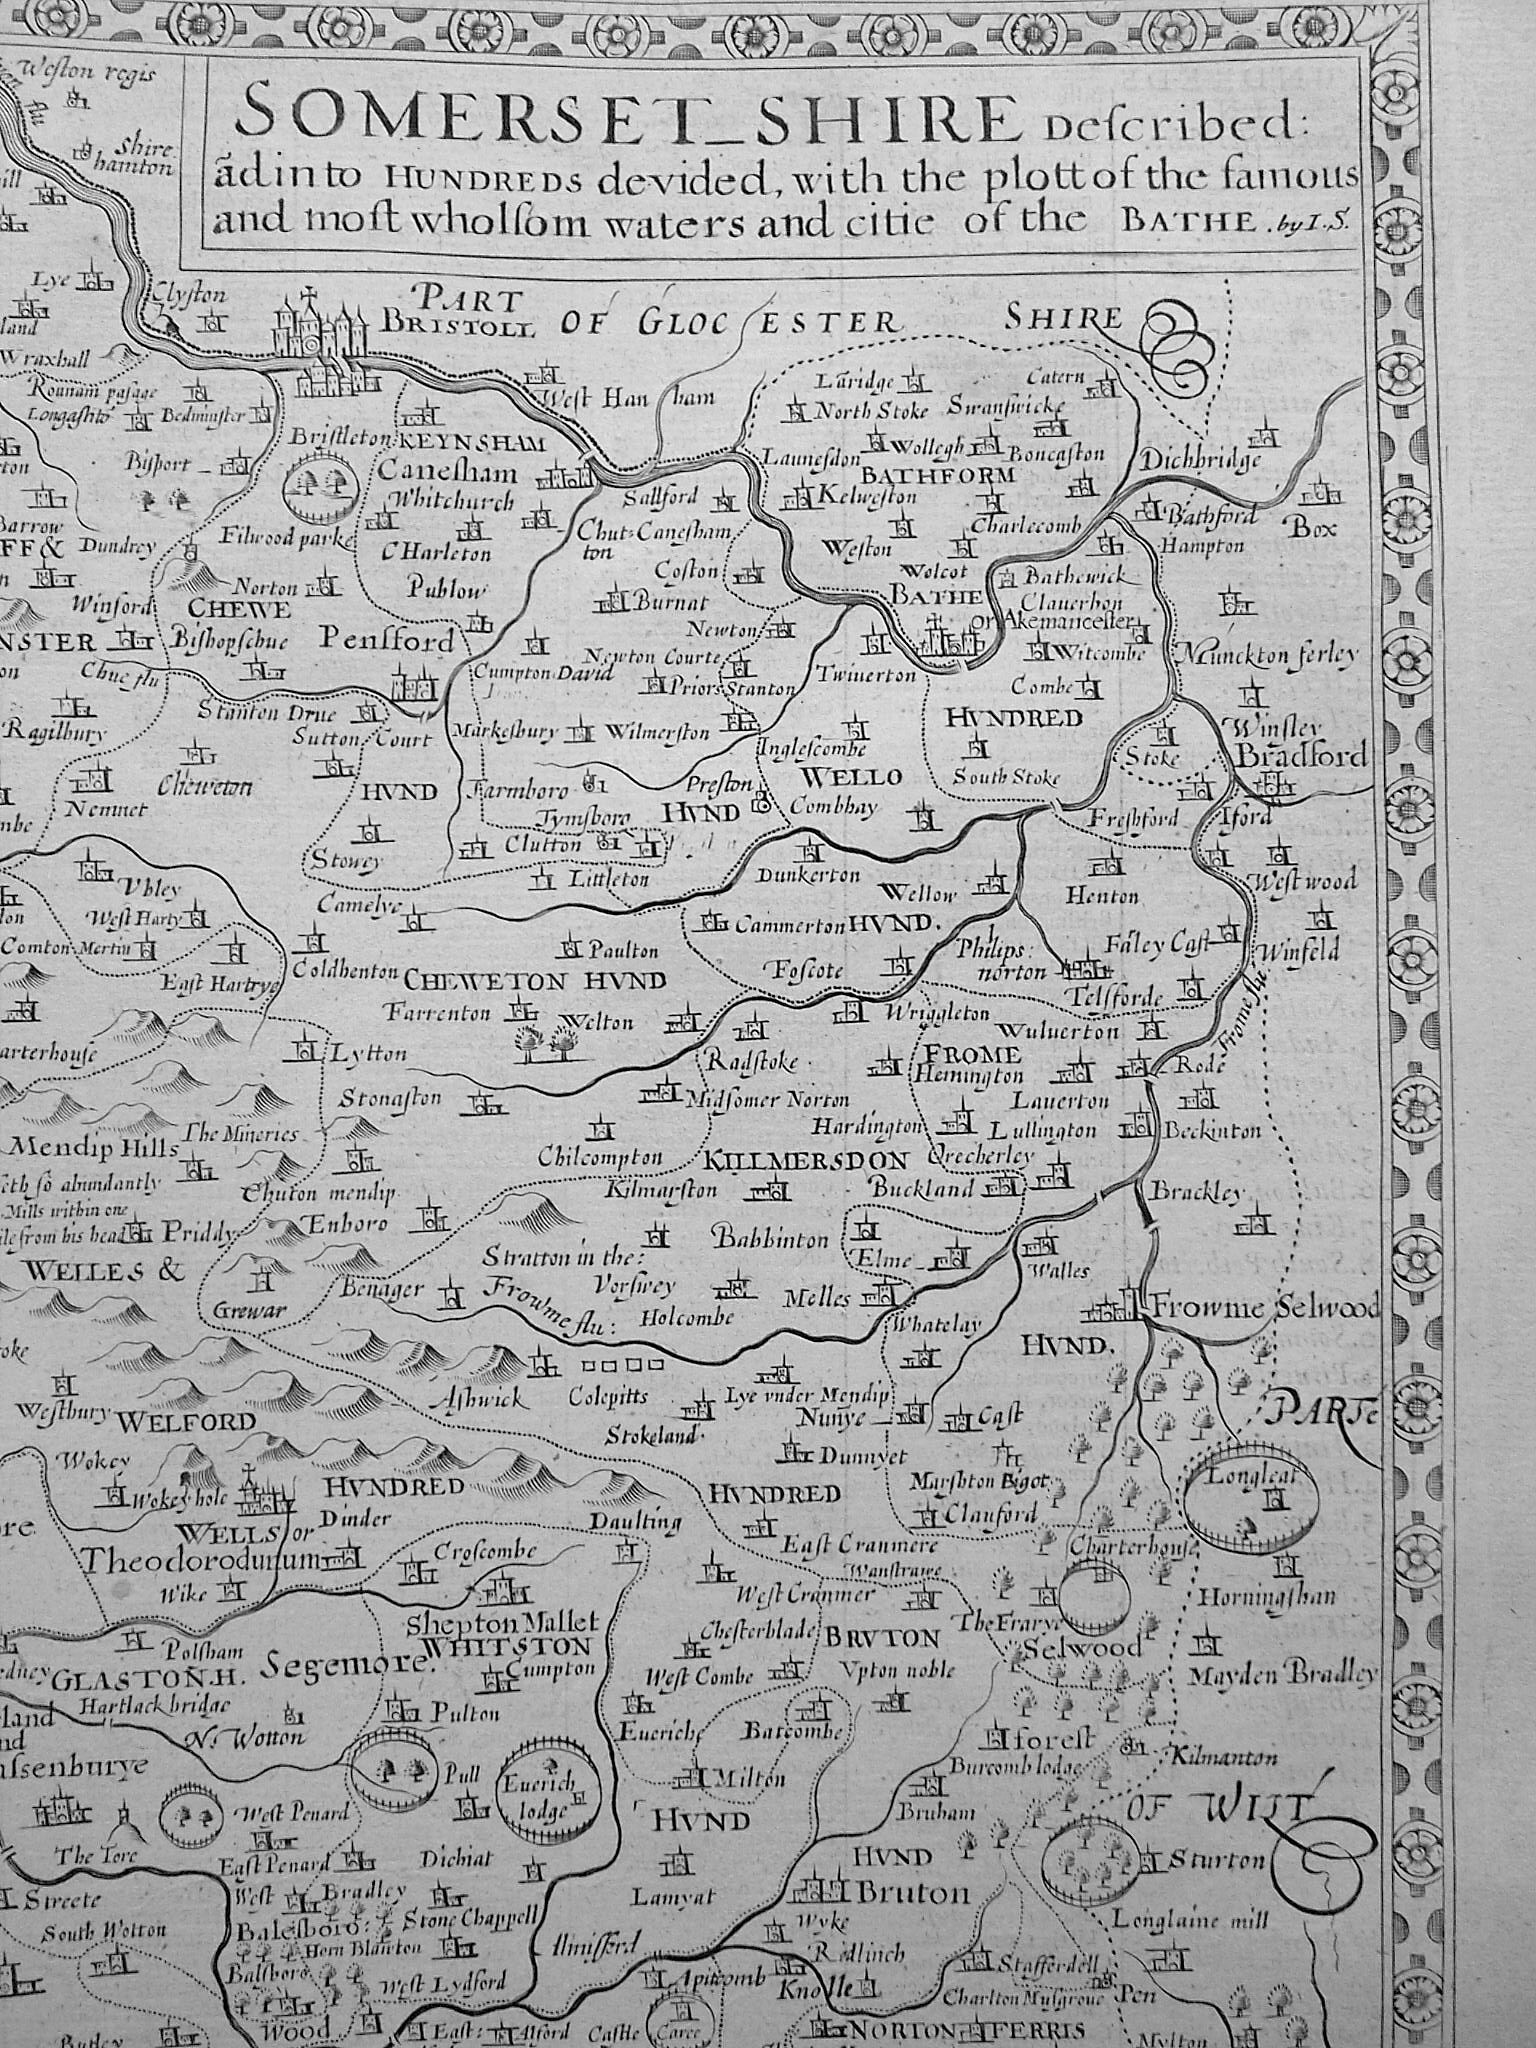 SOMERSET_SHIRE Deſcribed:
ãd in to HUNDREDS devided, with the plott of the famous
and moſt wholſom waters and citie of the BATHE. by I.S.
Weſton regis
flu
Shire
hamton
Lye
Clyſton
PART OF GLOCESTER SHIRE
BRISTOLL
Wraxhall
Rounam paſage
Longaſhtō
Bedminſter
West Hanham
Laridge
Catern
North Stoke
Swanſwicke
Briſtleton
KEYNSHAM
Biſport
Caneſham
Launeſdon
Wollegh
Boncaſton
Dichbridge
BATHFORM
Whitchurch
Saltford
Kelweſton
Barrow
Dundrey
Filwood parke
CHarleton
Chut:Caneſham
ton
Charlecomb
Bathford
Box
Weſton
Hampton
Coſton
Wolcot
Norton
Publow
Bathewick
Winford
CHEWE
Burnat
BATHE
Clauerhon
or Akemanceſter
Biſhopſchue
Penſford
Newton
Chue flu
Newton Courte
Witcombe
Munckton ferley
Cumpton David
Priors Stanton
Twiuerton
Combe
Stanton Drue
Ragilbury
Sutton Court
Markeſbury
Wilmerſton
HVNDRED
Winſley
Ingleſcombe
Stoke
Bradford
Cheweton
HVND
Farmboro
Preſton
WELLO
South Stoke
Nemnet
HVND
Combhay
Tymſboro
Freſhford
Iford
Stowey
Clutton
Littleton
Dunkerton
Vbley
Wellow
Henton
Weſtwood
Camelye
West Harty
Cammerton
HVND.
Comton Mertin
Paulton
Philips:
norton
Faley Caſt
Winfeld
Coldhenton
Foſcote
East Hartrye
CHEWETON HVND
Telſforde
Farrenton
Welton
Wriggleton
Frome flu
Wuluerton
Lytton
Radſtoke
FROME
Hemington
Rode
Stonaſton
Midſomer Norton
Lauerton
The Mineries
Hardington
Lullington
Beckinton
Mendip Hills
Chilcompton
KILLMERSDON
Orecherley
ſo abundantly
Chuton mendip
Kilmarſton
Buckland
Brackley
Mills within one
Priddy
Enboro
from his head
Babbinton
Elme
WELLES &
Stratton in the:
Vorſwey
Walles
Grewar
Benager
Frowme flu:
Holcombe
Melles
Frowme Selwood
Whatelay
HVND.
Aſhwick
Colepitts
Lye vnder Mendip
Nunye
Weſtbury
WELFORD
Caſt
PARTE
Stokeland
Wokey
Dunnyet
Wokey hole
HVNDRED
Marſhton Bigot
Longleat
HVNDRED
Clauford
WELLS or
Dinder
Daulting
Theodorodunum
Eaſt Cranmere
Charterhouſe
Croſcombe
Wanſtrawe
Wike
West Cranmer
Horningſhan
Shepton Mallet
The Frarye
Polſham
WHITSTON
Cheſterblade
BRVTON
Selwood
GLASTOÑ.H.
Segemore.
Cumpton
West Combe
Vpton noble
Mayden Bradley
Hartlack bridge
N. Wotton
Pulton
Euerich
Batcombe
forest
Kilmanton
Burcomb lodge
Pull
Euerich
lodge
Milton
West Penard
Bruham
OF WILT
HVND
HVND
The Tore
East Penard
Dichiat
Sturton
Streete
West Bradley
Lamyat
Bruton
South Wotton
Balesboro:
Stone Chappell
Wyke
Longlaine mill
Horn Blawton
Almiſford
Redlinch
Balſboro
West Lydford
Apitcomb
Knolle
Stafferdell
Charlton Muſgroue
Pen
Wood
Eaſt:
Alford
Caſtle
Carce
NORTON FERRIS
Mylton
Butley